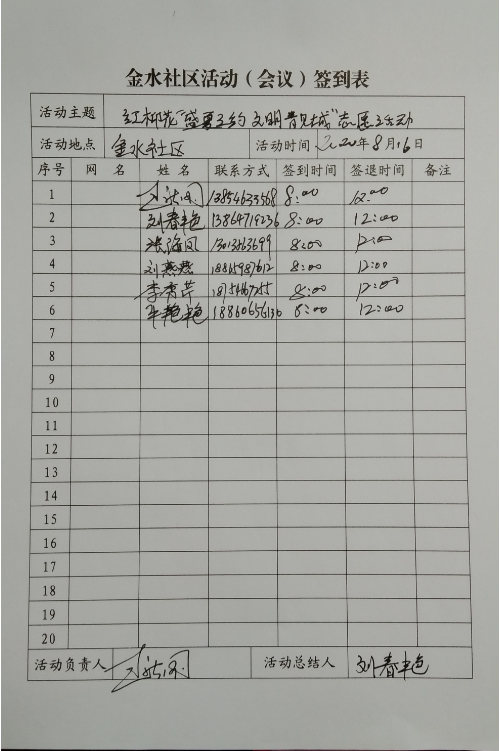 金水社区活动（会议）签到表
活动主题 红柳花“盛夏之约 文明青见城”志愿活动
活动地点 金水社区 活动时间 2020年8月16日
序号 网 名 姓 名 联系方式 签到时间 签退时间 备注
1 13854633568 8:00 12:00
2 刘春艳 13864719236 8:00 12:00
3 张海凤 8:00 12:00
4 刘燕燕 8:00 12:00
5 李秀芹 8:00 12:00
6 艳艳 18860656130 8:00 12:00
7
8
9
10
11
12
13
14
15
16
17
18
19
20
活动负责人 活动总结人 刘春艳